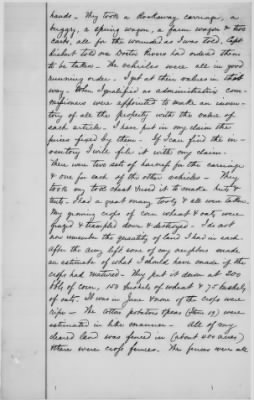 hands. They took a Rockaway carriage, a
buggy, a spring wagon, a farm wagon & two
carts, all for the wounded as I was told. Capt
told me Doctor Rivers had ordered them
to be taken. The vehicles were all in good
running order. I got at their values in that
way. When I qualified as administratrix com-
missioners were appointed to make an inven-
tory of all the property with the value of
each article. I have put in my claim the
prices fixed by them. If I can find the in-
ventory I will file it with my claim.
There were two sets of harness for the carriage
& one for each of the other vehicles. They
took my tool chest & used it to make huts &
tents. I had a great many tools & all were taken.
My growing crops of corn wheat & oats, were
grazed & trampled down & destroyed. I do not
now remember the quantity of land I had in each.
After the army left some of my neighbors made
an estimate of what I should have made if the
crops had matured. They put it down at 200
bbls of corn, 150 bushels of wheat & 75 bushels
of oats. It was in June & none of the crops were
ripe. The cotton potatoes & peas (Item 19) were
estimated in like manner. All of my
cleared land was fenced in (about 400 acres)
& there were cross fences. The fences were all